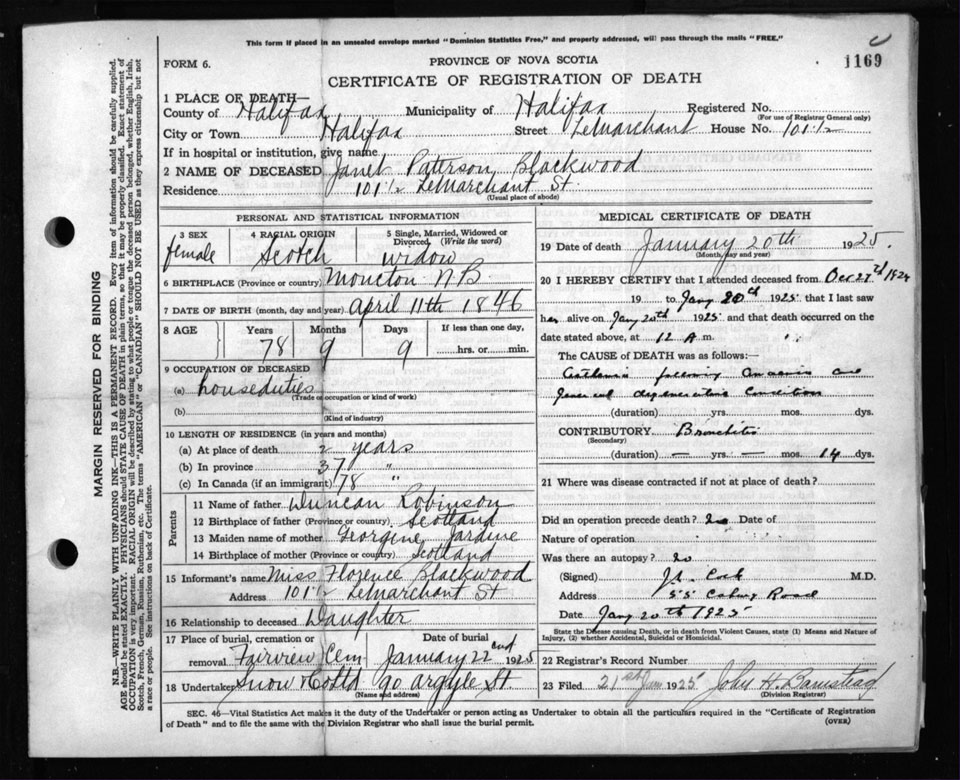 This form if placed in an unsealed envelope marked "Dominion Statistics Free," and properly addressed, will pass through the mails "FREE."
FORM 6.
PROVINCE OF NOVA SCOTIA
1169
CERTIFICATE OF REGISTRATION OF DEATH
1 PLACE OF DEATH—
County of Halifax Municipality of Halifax Registered No.
(For use of Registrar General only)
City or Town Halifax Street LeMarchant House No. 101½
If in hospital or institution, give name
2 NAME OF DECEASED Janet Paterson Blackwood
Residence 101½ LeMarchant St.
(Usual place of abode)
PERSONAL AND STATISTICAL INFORMATION
3 SEX 4 RACIAL ORIGIN 5 Single, Married, Widowed or Divorced, (Write the word)
female Scotch widow
6 BIRTHPLACE (Province or country) Moncton N B
7 DATE OF BIRTH (month, day and year) April 11th 1846
8 AGE Years Months Days If less than one day,
78 9 9 hrs. or min.
9 OCCUPATION OF DECEASED
(a) houseduties
(Trade occupation or kind of work)
(b)
(Kind of industry)
10 LENGTH OF RESIDENCE (in years and months)
(a) At place of death 2 years
(b) In province 37 "
(c) In Canada (if an immigrant) 78 "
Parents
11 Name of father Duncan Robinson
12 Birthplace of father (Province or country) Scotland
13 Maiden name of mother Georgine Jardine
14 Birthplace of mother (Province or country) Scotland
15 Informant's name Miss Florence Blackwood
Address 101½ LeMarchant St
16 Relationship to deceased Daughter
17 Place of burial, cremation or removal Fairview Cem Date of burial January 22nd 1925
18 Undertaker Snow & Co Ltd 90 Argyle St.
(Name and address)
MEDICAL CERTIFICATE OF DEATH
19 Date of death January 20th 1925.
(Month, day and year)
20 I HEREBY CERTIFY that I attended deceased from Oct 1924
19 to Jany 20th 1925 that I last saw
her alive on Jany 20th 1925 and that death occurred on the
date stated above, at 12 A m.
The CAUSE OF DEATH was as follows:—
Asthenia following and
General degenerative
(duration) yrs. mos. dys.
CONTRIBUTORY Bronchitis
(Secondary)
(duration) — yrs. — mos. 14 dys.
21 Where was disease contracted if not at place of death?
Did an operation precede death? No Date of
Nature of operation
Was there an autopsy? no
(Signed) M.D.
Address Road
Date Jany 20th 1925
State the Disease causing Death, or in death from Violent Causes, state (1) Means and Nature of Injury, (2) whether Accidental, Suicidal or Homicidal.
22 Registrar's Record Number
23 Filed 21st Jan 1925 John H. Barnstead
(Division Registrar)
SEC. 46—Vital Statistics Act makes it the duty of the Undertaker or person acting as Undertaker to obtain all the particulars required in the "Certificate of Registration
of Death" and to file the same with the Division Registrar who shall issue the burial permit.
(OVER)
MARGIN RESERVED FOR BINDING
N.B.—WRITE PLAINLY WITH UNFADING INK—THIS IS A PERMANENT RECORD. Every item of information should be carefully supplied.
AGE should be stated EXACTLY. PHYSICIANS should STATE CAUSE OF DEATH in plain terms, so that it may be properly classified. Exact statement of
OCCUPATION is very important. RACIAL ORIGIN will be described by stating to what people or tongue the deceased person belonged, whether English, Irish,
Scotch, French, German, Russian, Ruthenian, etc. The terms "AMERICAN" or "CANADIAN" SHOULD NOT BE USED as they express citizenship but not
a race or people. See instructions on back of Certificate.